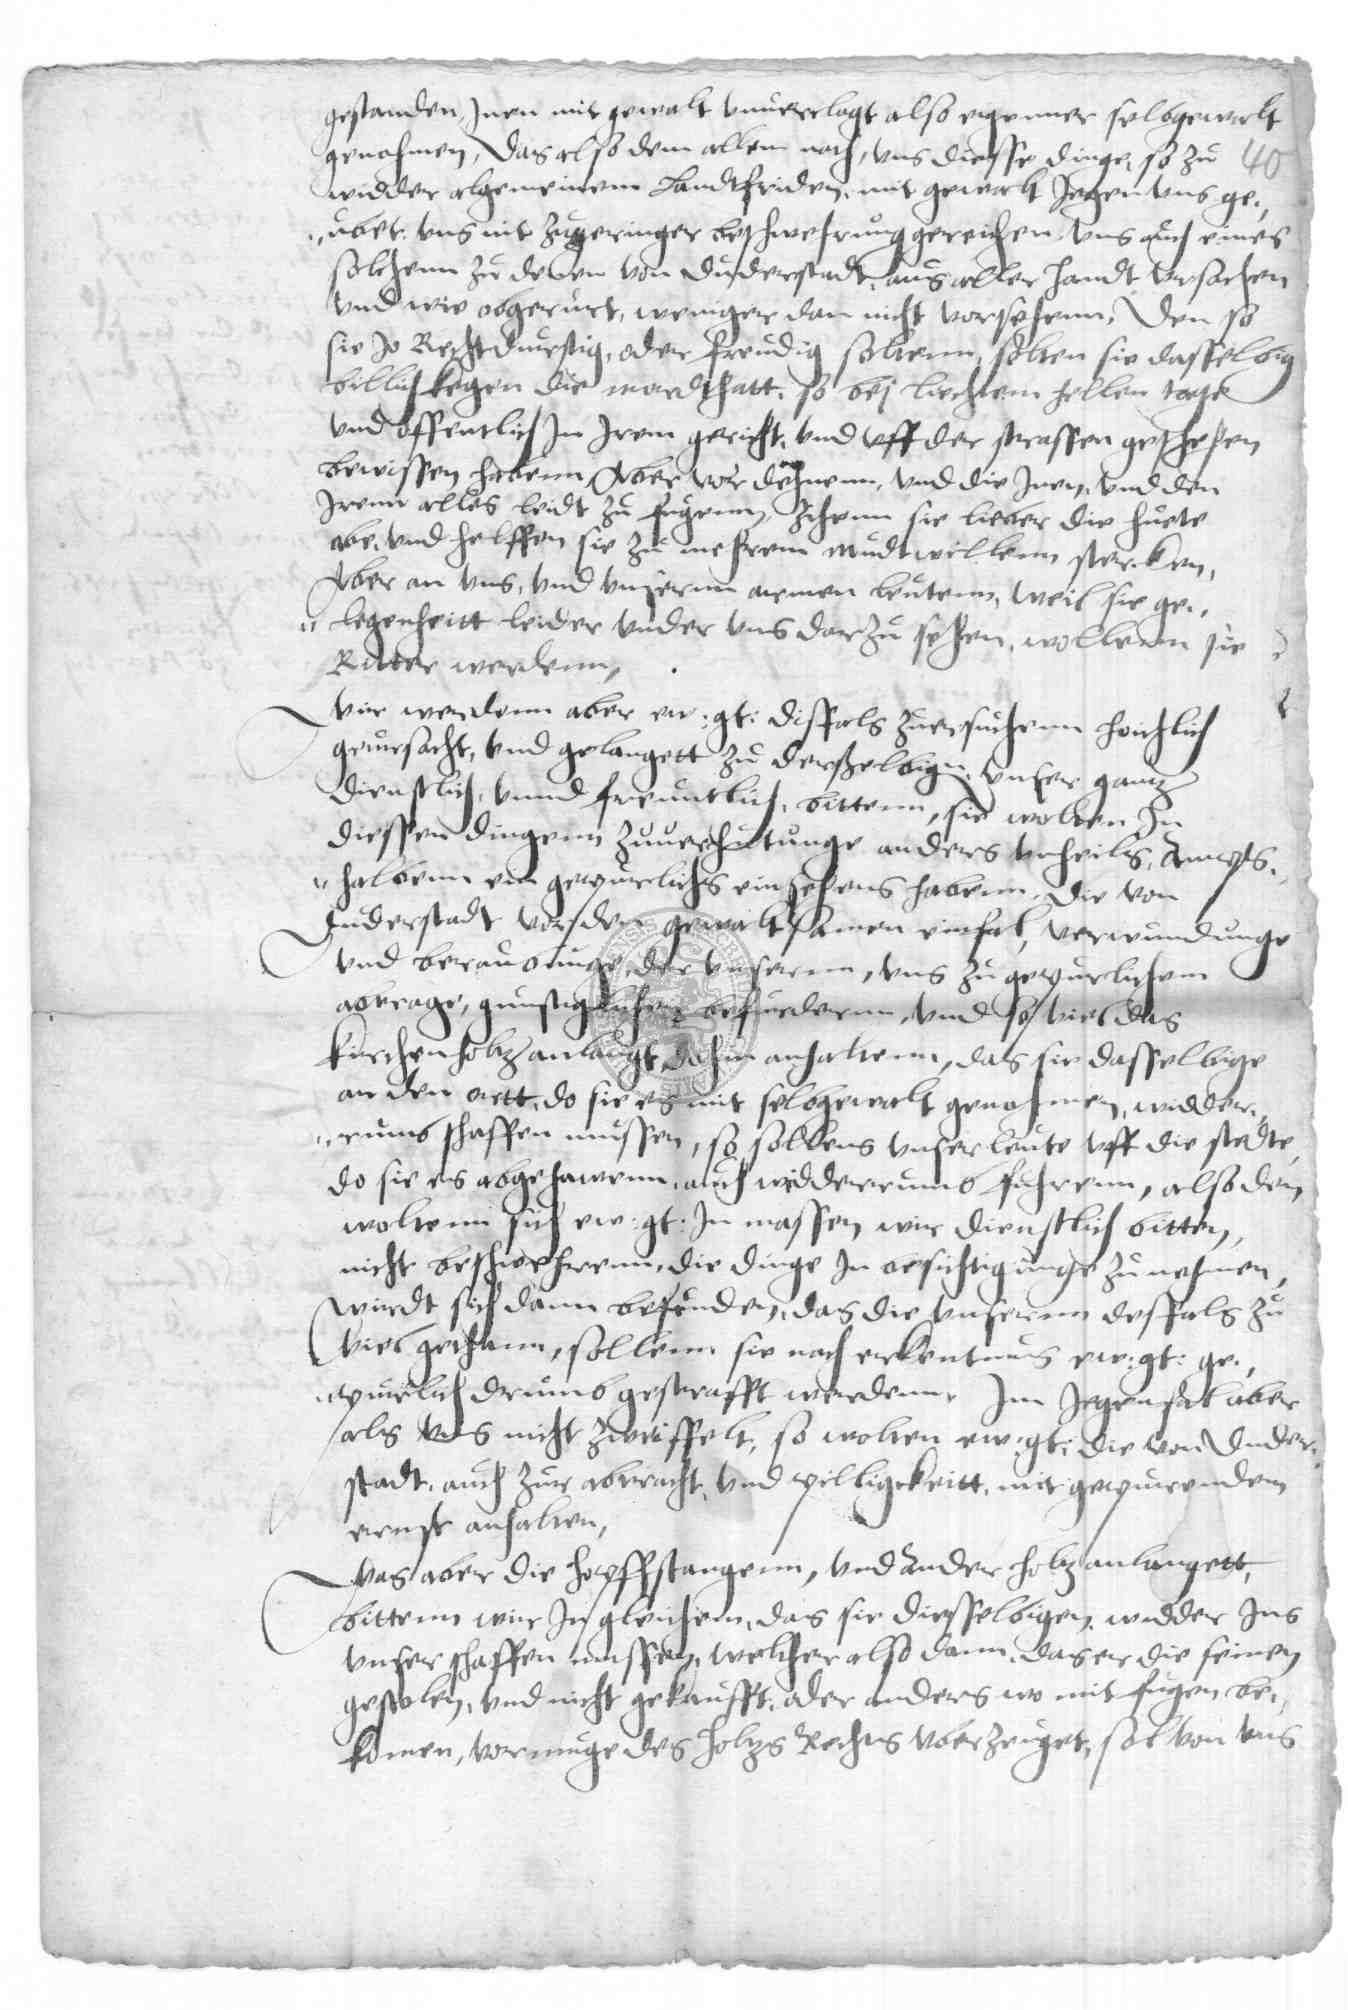 gestanden, Inen mit gewalt vnuerclagt also eigenner selbgewalt
genohmen, Das also dem allem nach, vns diesse dinge, so zu
40
widder algemeinem Landtfriden, mit gewalt Jegen vns ge„
„ubet, vns nit zugeringer beschwehrung gereichen, vns auch eines
solchenn zu denen von Duderstadt, aus aller handt vrsachen
vnd wie obgerurt, weniger dan nicht vorsehenn, Den so
sie Jo Recht durstig, oder freudig soltenn, solten sie dasselbig
billich kegen die mordthatt, so bej liechtem hellen tage
vnd offentlich In Irem gericht, vnd vff der strassen geschehen
bewissen habenn, Aber vor denenn, vnd die Inen, vnd den
Irenn alles leidt zu fugenn, zihenn sie lieber die huete
abe, vnd helffen sie zu mehrem mudtwillenn stercken,
Aber an vns, vnd vnsernn armen leutenn, weil sie ge„
„legenheitt leider vnder vns darzu sehen, wollenn sie
Ritter werdenn,
Wir werdenn aber ew: gt: dissfals zuersuchenn hochlich
geursacht, vnd gelangett zu derselbign, vnser gantz
dienstlich, vnnd freuntlich, bittenn, sie wolten In
diessen dingenn zuuerhutunge anders vnheils, Ampts„
„halbenn ein gepurlichs einsehens habenn, Die von
Duderstadt vor den gewaltsamen einfal, verwundunge
vnd beraubunge, der vnsernn, vns zu gepurlichem
abtrage, gunstiglichen befurdernn, vnd so viel das
kirchenholtz anlangt, dahin anhaltenn, das sie dasselbige
an den ortt, do sie es mit selbgewalt genohmen, widder„
„rumb schaffen mussen, so sollens vnser leute vff die stedte,
do sie es abgehawenn, auch widderumb fuhrenn, also den
woltenn sich ew: gt: In massen wir dienstlich bitten,
nicht beschwehrenn, die dinge In besichtigunge zu nehmen,
Wurdt sich dann befunden, das die vnsernn desfals zu
viel gethann, sollenn sie nach erkentnus ew: gt: ge„
„purlich drumb gestrafft werdenn, Im Jegenfal aber
als vns nicht zweiffelt, so wolten ew: gt: die von Duder„
stadt, auch zur abtracht, vnd pilligkeitt, mit gepurendem
ernst anhalten,
Was aber die hopffstangenn, vnd ander holtz anlangett,
bittenn wir Ingleichem, das sie diesselbigen, widder Ins
vnser schaffen mussen, welcher also dann, das er die seinen
gestolen, vnd nicht gekaufft, oder anders wo mit fugen be„
komen, vormuge des holtzs Rechts vberzeuget, sol von vns